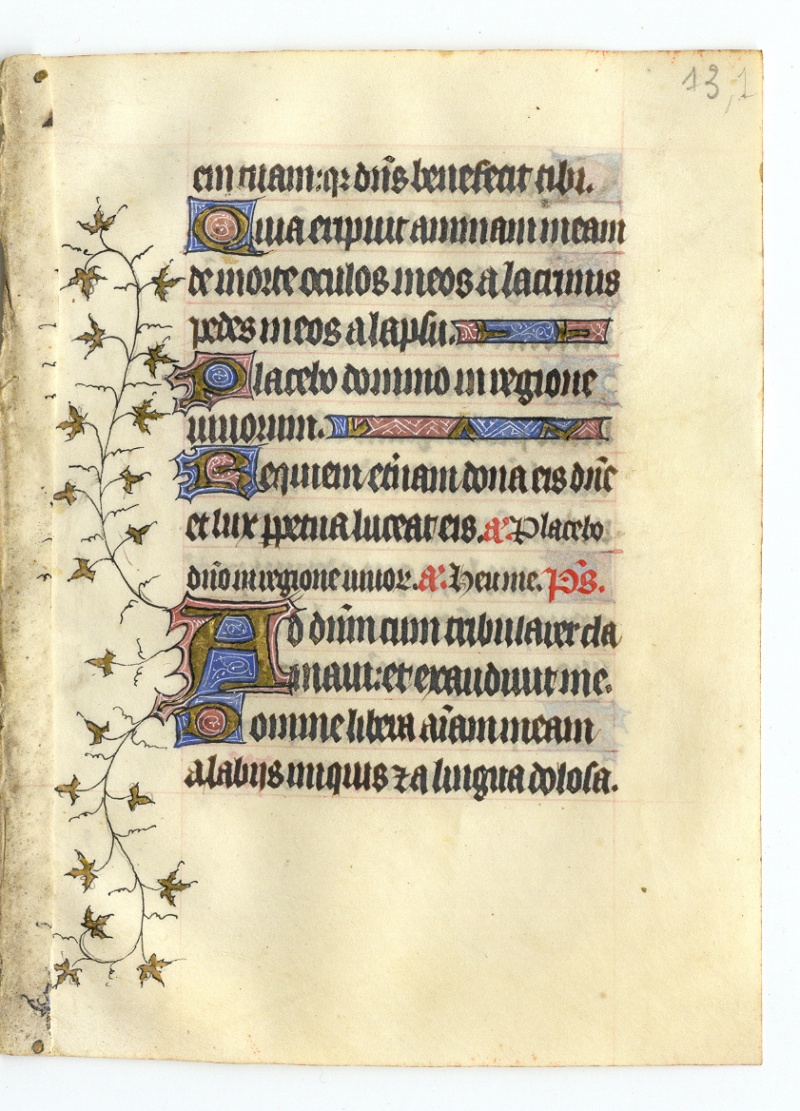 13,1
em tuam: qr dñs benefecit tibi.
Quia eripuit animam meam
de morte oculos meos a lacrimis
pedes meos a lapsu.
Placebo domino in regione
uiuorum.
Requiem et̃nam dona eis dñe
et lux ꝑpetua luceat eis. a᷒. Placebo
dño in regione uiuor. a᷒. Heu me. p̃s.
Ad dñm cum tribularer cla
maui: et exaudiuit me.
Domine libera aĩam meam
a labijs iniquis ⁊ a lingua dolosa.